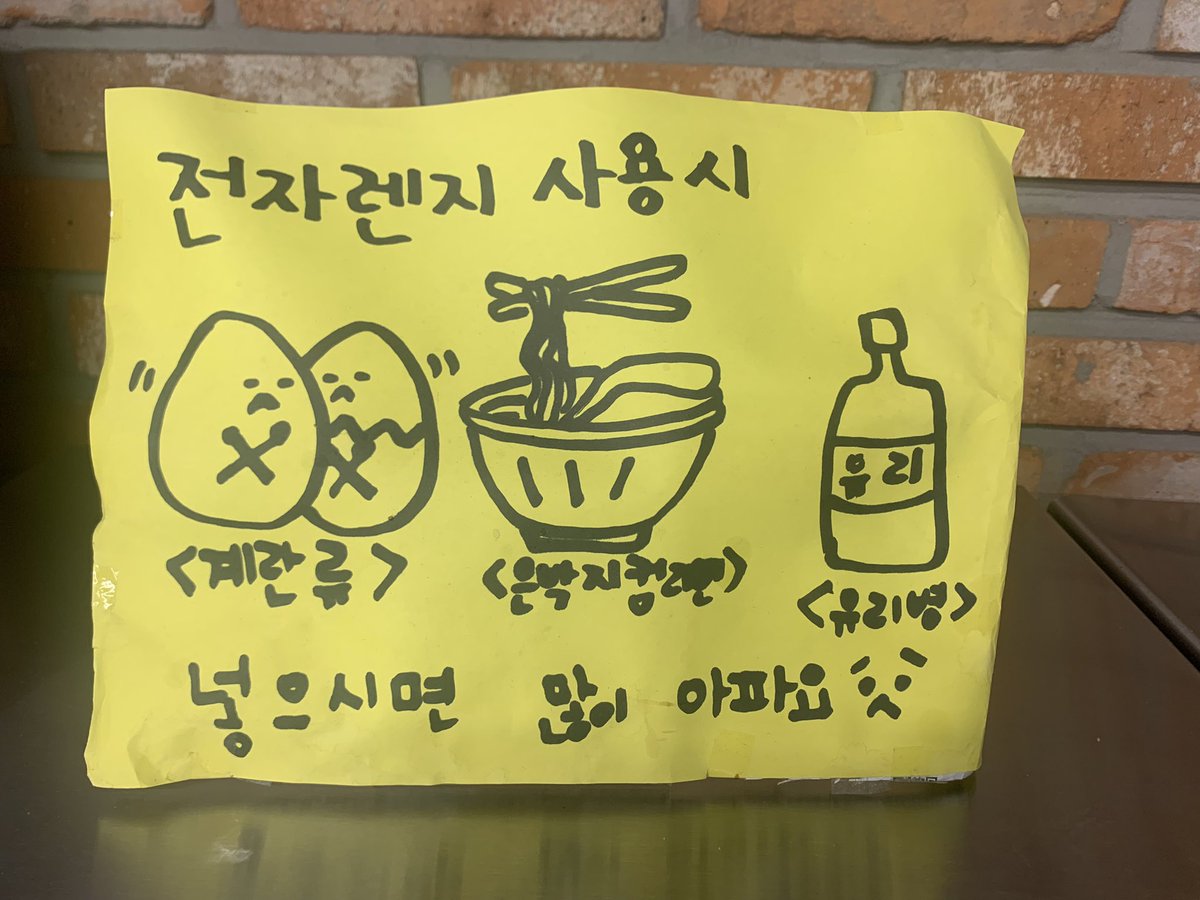 전자렌지 사용시
유리
<계란류>
<은박지컵라면>
<유리병>
넣으시면 많이 아파요